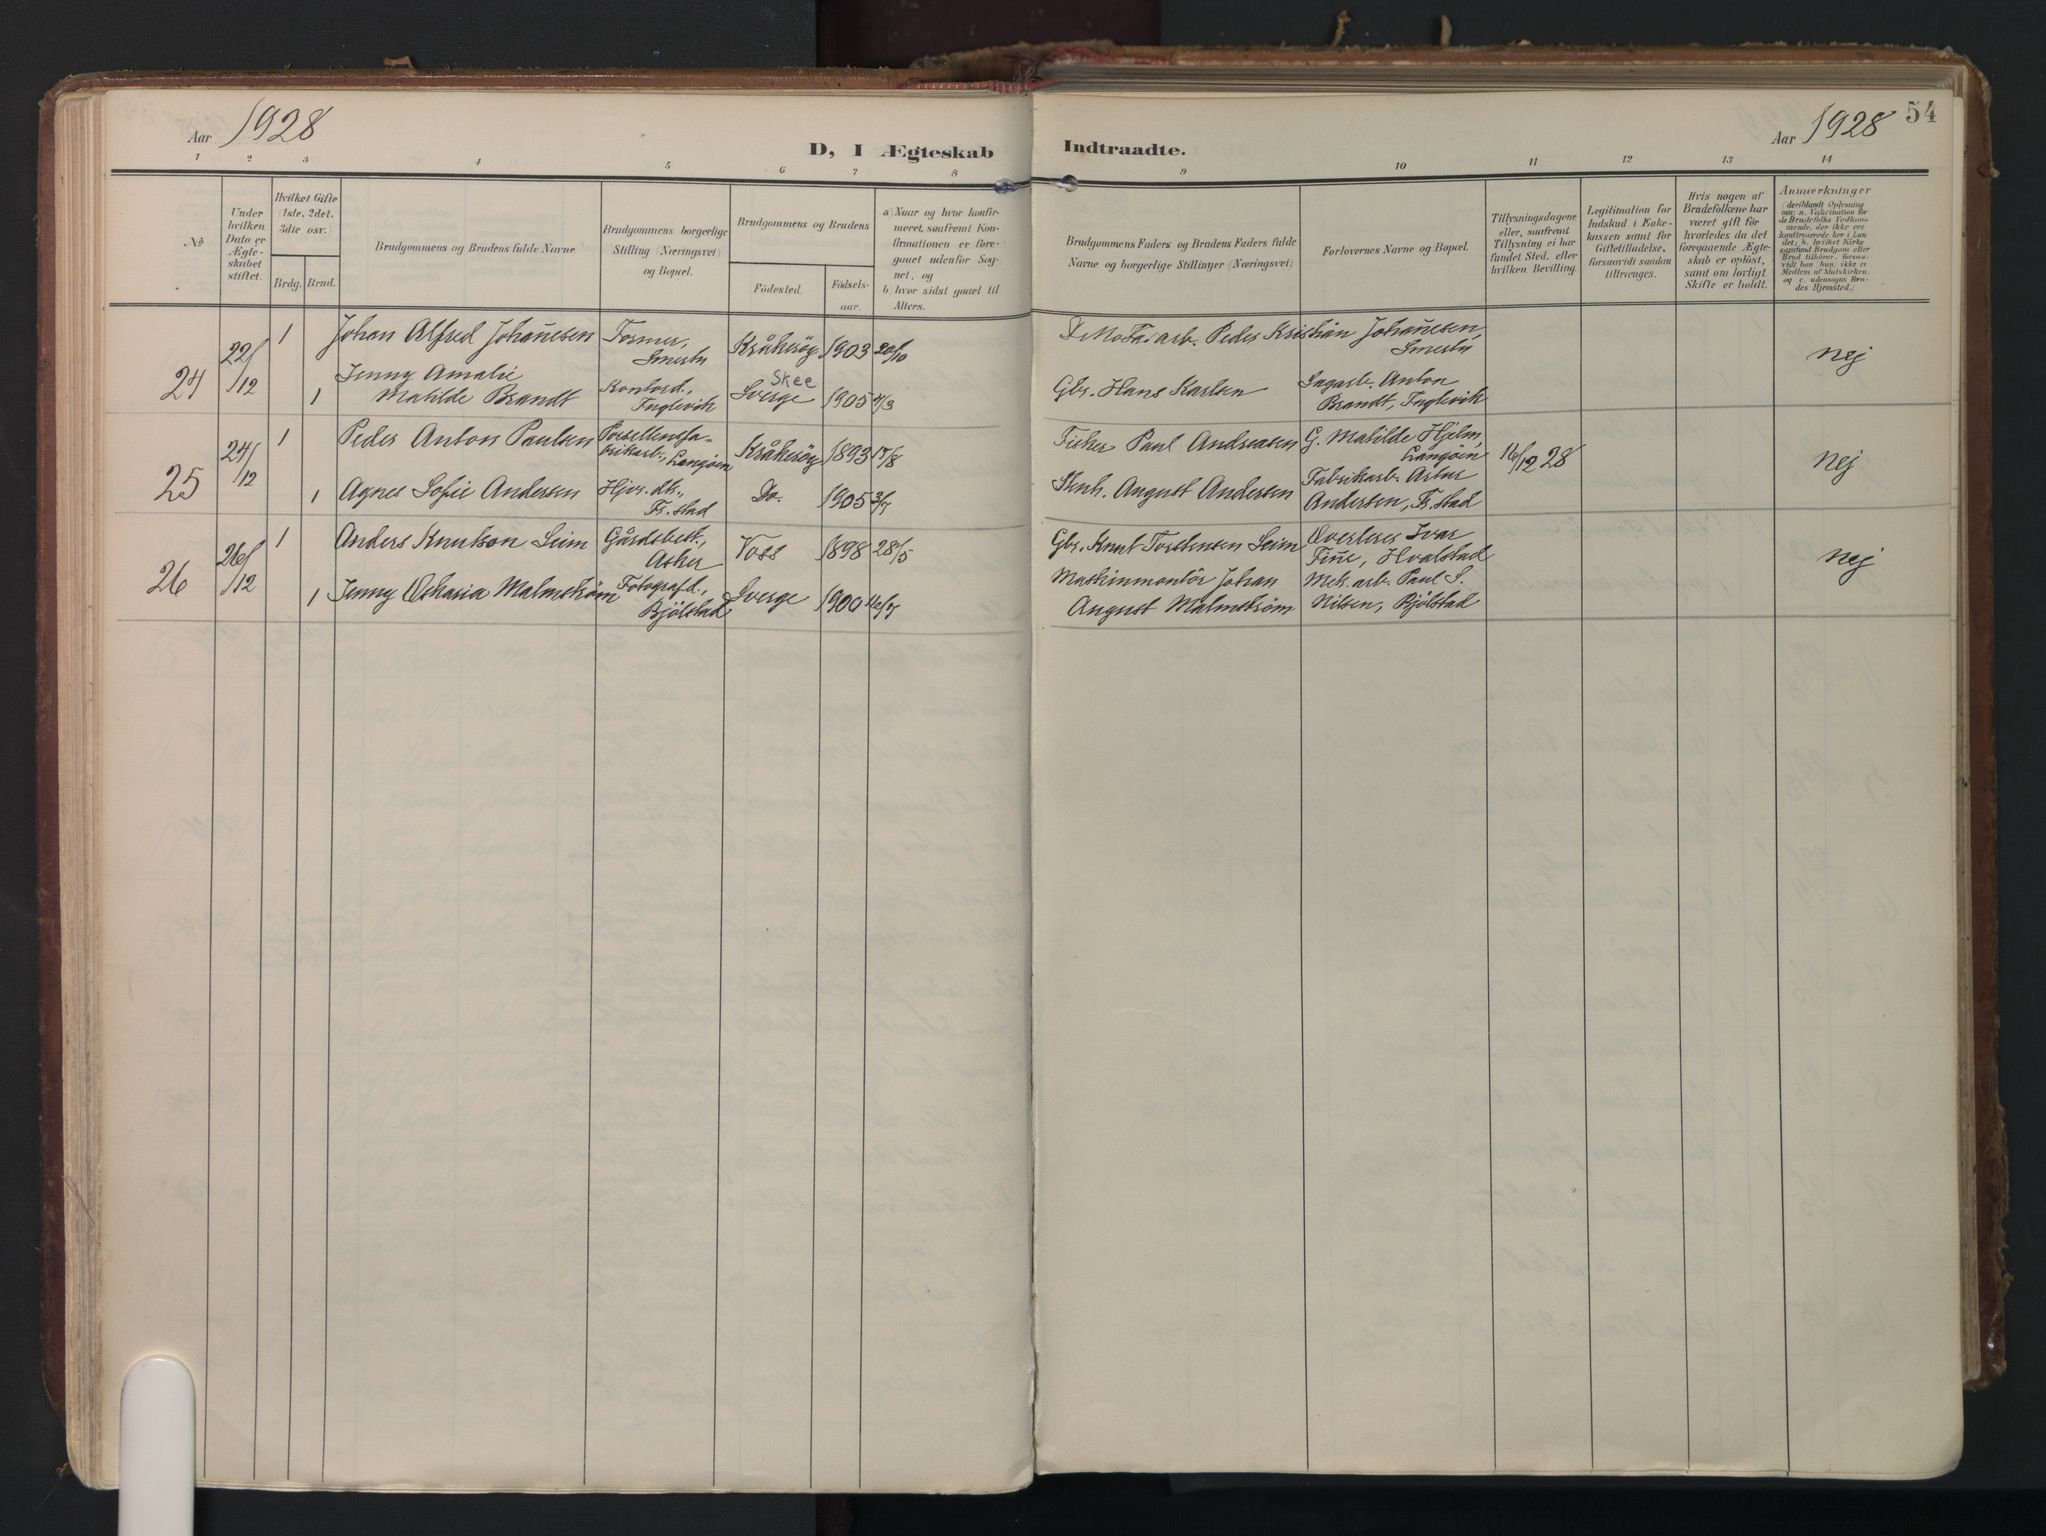 Aar 1928
D, I Ægteskab Indtraadte.
Aar 1928 54
1 2 3 4 5 6 7 8 9 10 11 12 13 14
No
Under hvilken Dato er Ægteskabet stiftet.
Hvilket Gifte (1ste, 2det, 3die osv.)
Brdg. Brud.
Brudgommens og Brudens fulde Navne
Brudgommens borgerlige Stilling (Næringsvei) og Bopæl.
Brudgommens og Brudens
Fødested.
Fødselsaar.
a) Naar og hvor konfirmeret, saafremt Konfirmationen er foregaaet udenfor Sognet, og
b) hvor sidst gaaet til Alters.
Brudgommens Faders og Brudens Faders fulde Navne og borgerlige Stillinger (Næringsvei)
Forlovernes Navne og Bopæl.
Tillysningsdagene eller, saafremt Tillysning ei har fundet Sted, efter hvilken Bevilling.
Legitimation for Indskud i Enkekassen samt for Giftetilladelse, forsaavidt saadan tiltrænges.
Hvis nogen af Brudefolkene har været gift før hvorledes da det foregaaende Ægteskab er opløst, samt om lovligt Skifte er holdt.
Anmærkninger
(deriblandt Oplysning om: a. Vakcination for de Brudefolks Vedkommende, der ikke ere konfirmerede her i Landet; b. hvilket Kirkesamfund Brudgom eller Brud tilhører, forsaavidt han (hun) ikke er Medlem af Statskirken, og c. udensogns Brudes Hjemsted.)
24 22/12 1 Johan Alfred Johannesen Former, Smerty Kråkerøy 1903 20/10 Peder Kristian Johannesen, Smerty nej
1 Jenny Amalie Matilde Brandt Kontord., Fuglevik Skee Sverge 1905 4/3 Gbr. Hans Karlsen Sagarb. Anton Brandt, Fuglevik
25 24/12 1 Peder Anton Paulsen Porsellensfabrikarb., Langøen Kråkerøy 1893 17/8 Fisker Paul Andreasen G. Matilde Hjelm, Langøen 16/12 28 nej
1 Agnes Sofie Andersen Hjv. dtr., Fr.stad Do. 1905 2/7 Stenh. August Andersen Fabrikarb. Artur Andersen, Fr.stad
26 26/12 1 Anders Knutson Seim Gårdsbest., Asker Voss 1898 28/5 Gbr. Knut Torstensen Seim Overlærer Ivar Fine, Hvalstad nej
1 Jenny Oskaria Malmstrøm Fotografd., Bjølstad Sverge 1900 16/7 Maskinmontør Johan August Malmstrøm Mek. arb. Paul S. Nilsen, Bjølstad